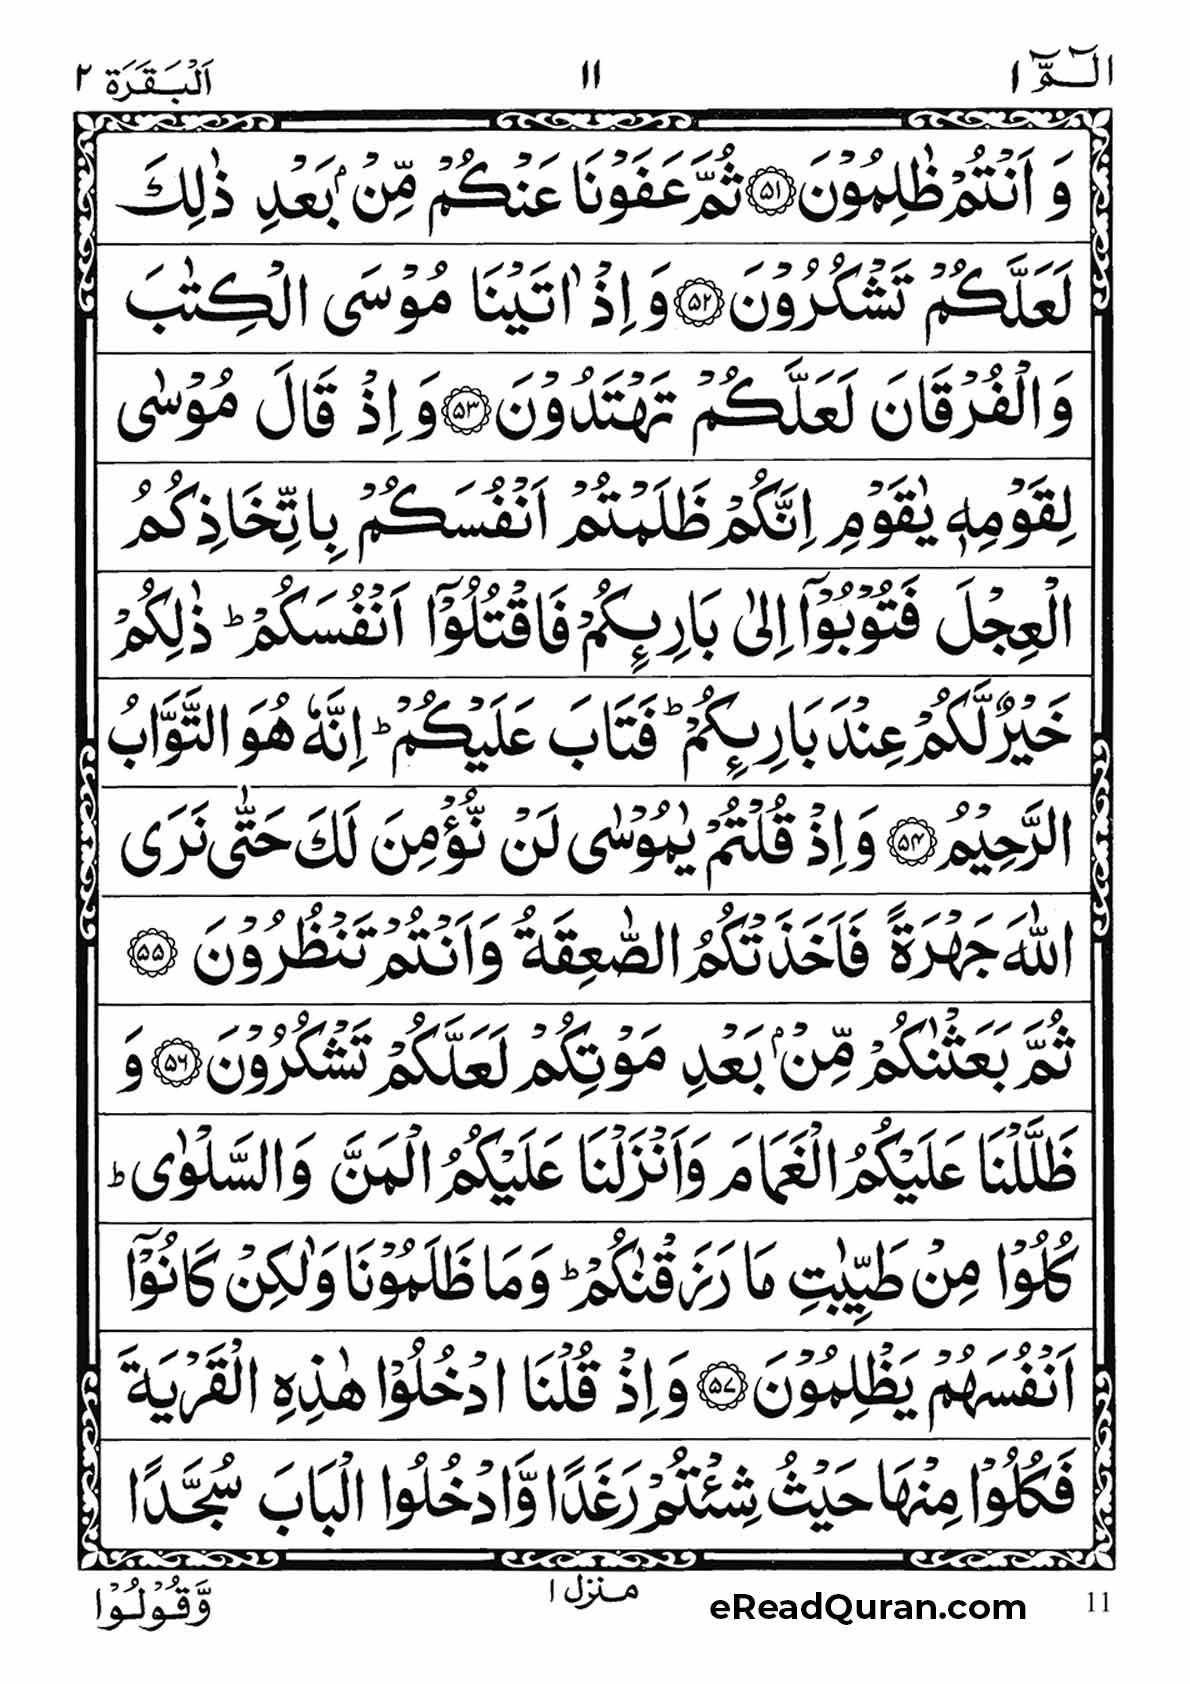 الٓمّٓ ١ ١١ اَلْبَقَرَة ٢
وَ اَنْتُمْ ظٰلِمُوْنَ ﴿۵۱﴾ ثُمَّ عَفَوْنَا عَنْكُمْ مِّنْۢ بَعْدِ ذٰلِكَ
لَعَلَّكُمْ تَشْكُرُوْنَ ﴿۵۲﴾ وَ اِذْ اٰتَيْنَا مُوْسَى الْكِتٰبَ
وَالْفُرْقَانَ لَعَلَّكُمْ تَهْتَدُوْنَ ﴿۵۳﴾ وَ اِذْ قَالَ مُوْسٰى
لِقَوْمِهٖ يٰقَوْمِ اِنَّكُمْ ظَلَمْتُمْ اَنْفُسَكُمْ بِاتِّخَاذِكُمُ
الْعِجْلَ فَتُوْبُوْٓا اِلٰى بَارِئِكُمْ فَاقْتُلُوْٓا اَنْفُسَكُمْ ؕ ذٰلِكُمْ
خَيْرٌ لَّكُمْ عِنْدَ بَارِئِكُمْ ؕ فَتَابَ عَلَيْكُمْ ؕ اِنَّهٗ هُوَ التَّوَّابُ
الرَّحِيْمُ ﴿۵۴﴾ وَ اِذْ قُلْتُمْ يٰمُوْسٰى لَنْ نُّؤْمِنَ لَكَ حَتّٰى نَرَى
اللّٰهَ جَهْرَةً فَاَخَذَتْكُمُ الصّٰعِقَةُ وَاَنْتُمْ تَنْظُرُوْنَ ﴿۵۵﴾
ثُمَّ بَعَثْنٰكُمْ مِّنْۢ بَعْدِ مَوْتِكُمْ لَعَلَّكُمْ تَشْكُرُوْنَ ﴿۵۶﴾ وَ
ظَلَّلْنَا عَلَيْكُمُ الْغَمَامَ وَاَنْزَلْنَا عَلَيْكُمُ الْمَنَّ وَالسَّلْوٰى ؕ
كُلُوْا مِنْ طَيِّبٰتِ مَا رَزَقْنٰكُمْ ؕ وَمَا ظَلَمُوْنَا وَلٰكِنْ كَانُوْٓا
اَنْفُسَهُمْ يَظْلِمُوْنَ ﴿۵۷﴾ وَ اِذْ قُلْنَا ادْخُلُوْا هٰذِهِ الْقَرْيَةَ
فَكُلُوْا مِنْهَا حَيْثُ شِئْتُمْ رَغَدًا وَّادْخُلُوا الْبَابَ سُجَّدًا
وَّقُوْلُوْا منزل ١ eReadQuran.com 11